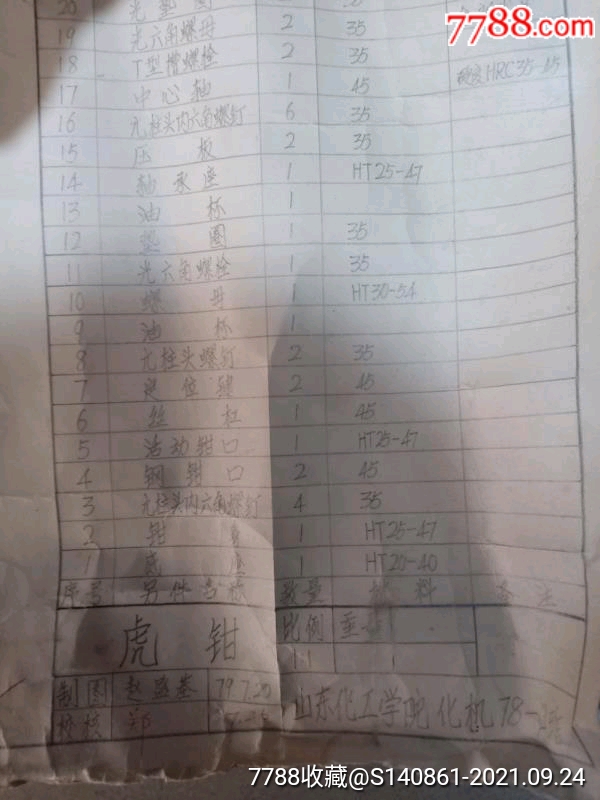 7788.com
20 光 垫 圈 2 35
19 光六角螺母 2 35
18 T型槽螺栓 2 35
17 中心轴 1 45 硬度HRC35-45
16 元柱头内六角螺钉 6 35
15 压 板 2 35
14 轴承座 1 HT25-47
13 油 杯 1
12 垫 圈 1 35
11 光六角螺栓 1 35
10 螺 母 1 HT30-54
9 油 杯 1
8 元柱头螺钉 2 35
7 定位键 2 45
6 丝 杠 1 45
5 活动钳口 1 HT25-47
4 钢钳口 2 45
3 元柱头内六角螺钉 4 35
2 钳 1 HT25-47
1 底 座 1 HT20-40
序号 另件名称 数量 材料 备注
虎 钳 比例 重
1:1 1
制图 赵 79.7.20 山东化工学院化机78-
校核 郑
7788收藏@S140861-2021.09.24